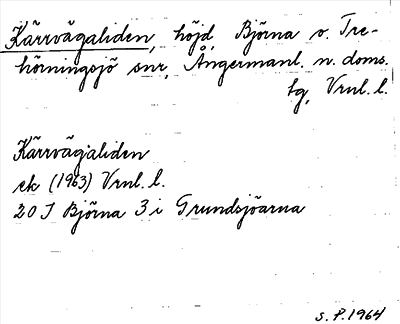 Kärrvägaliden, höjd, Björna o. Tre-
hörningsjö snr, Ångermanl. n. doms.
tg, Vrnl. l.
Kärrvägaliden
ek (1963) Vrnl. l.
20 J Björna 3 i Grundsjöarna
S. P. 1964